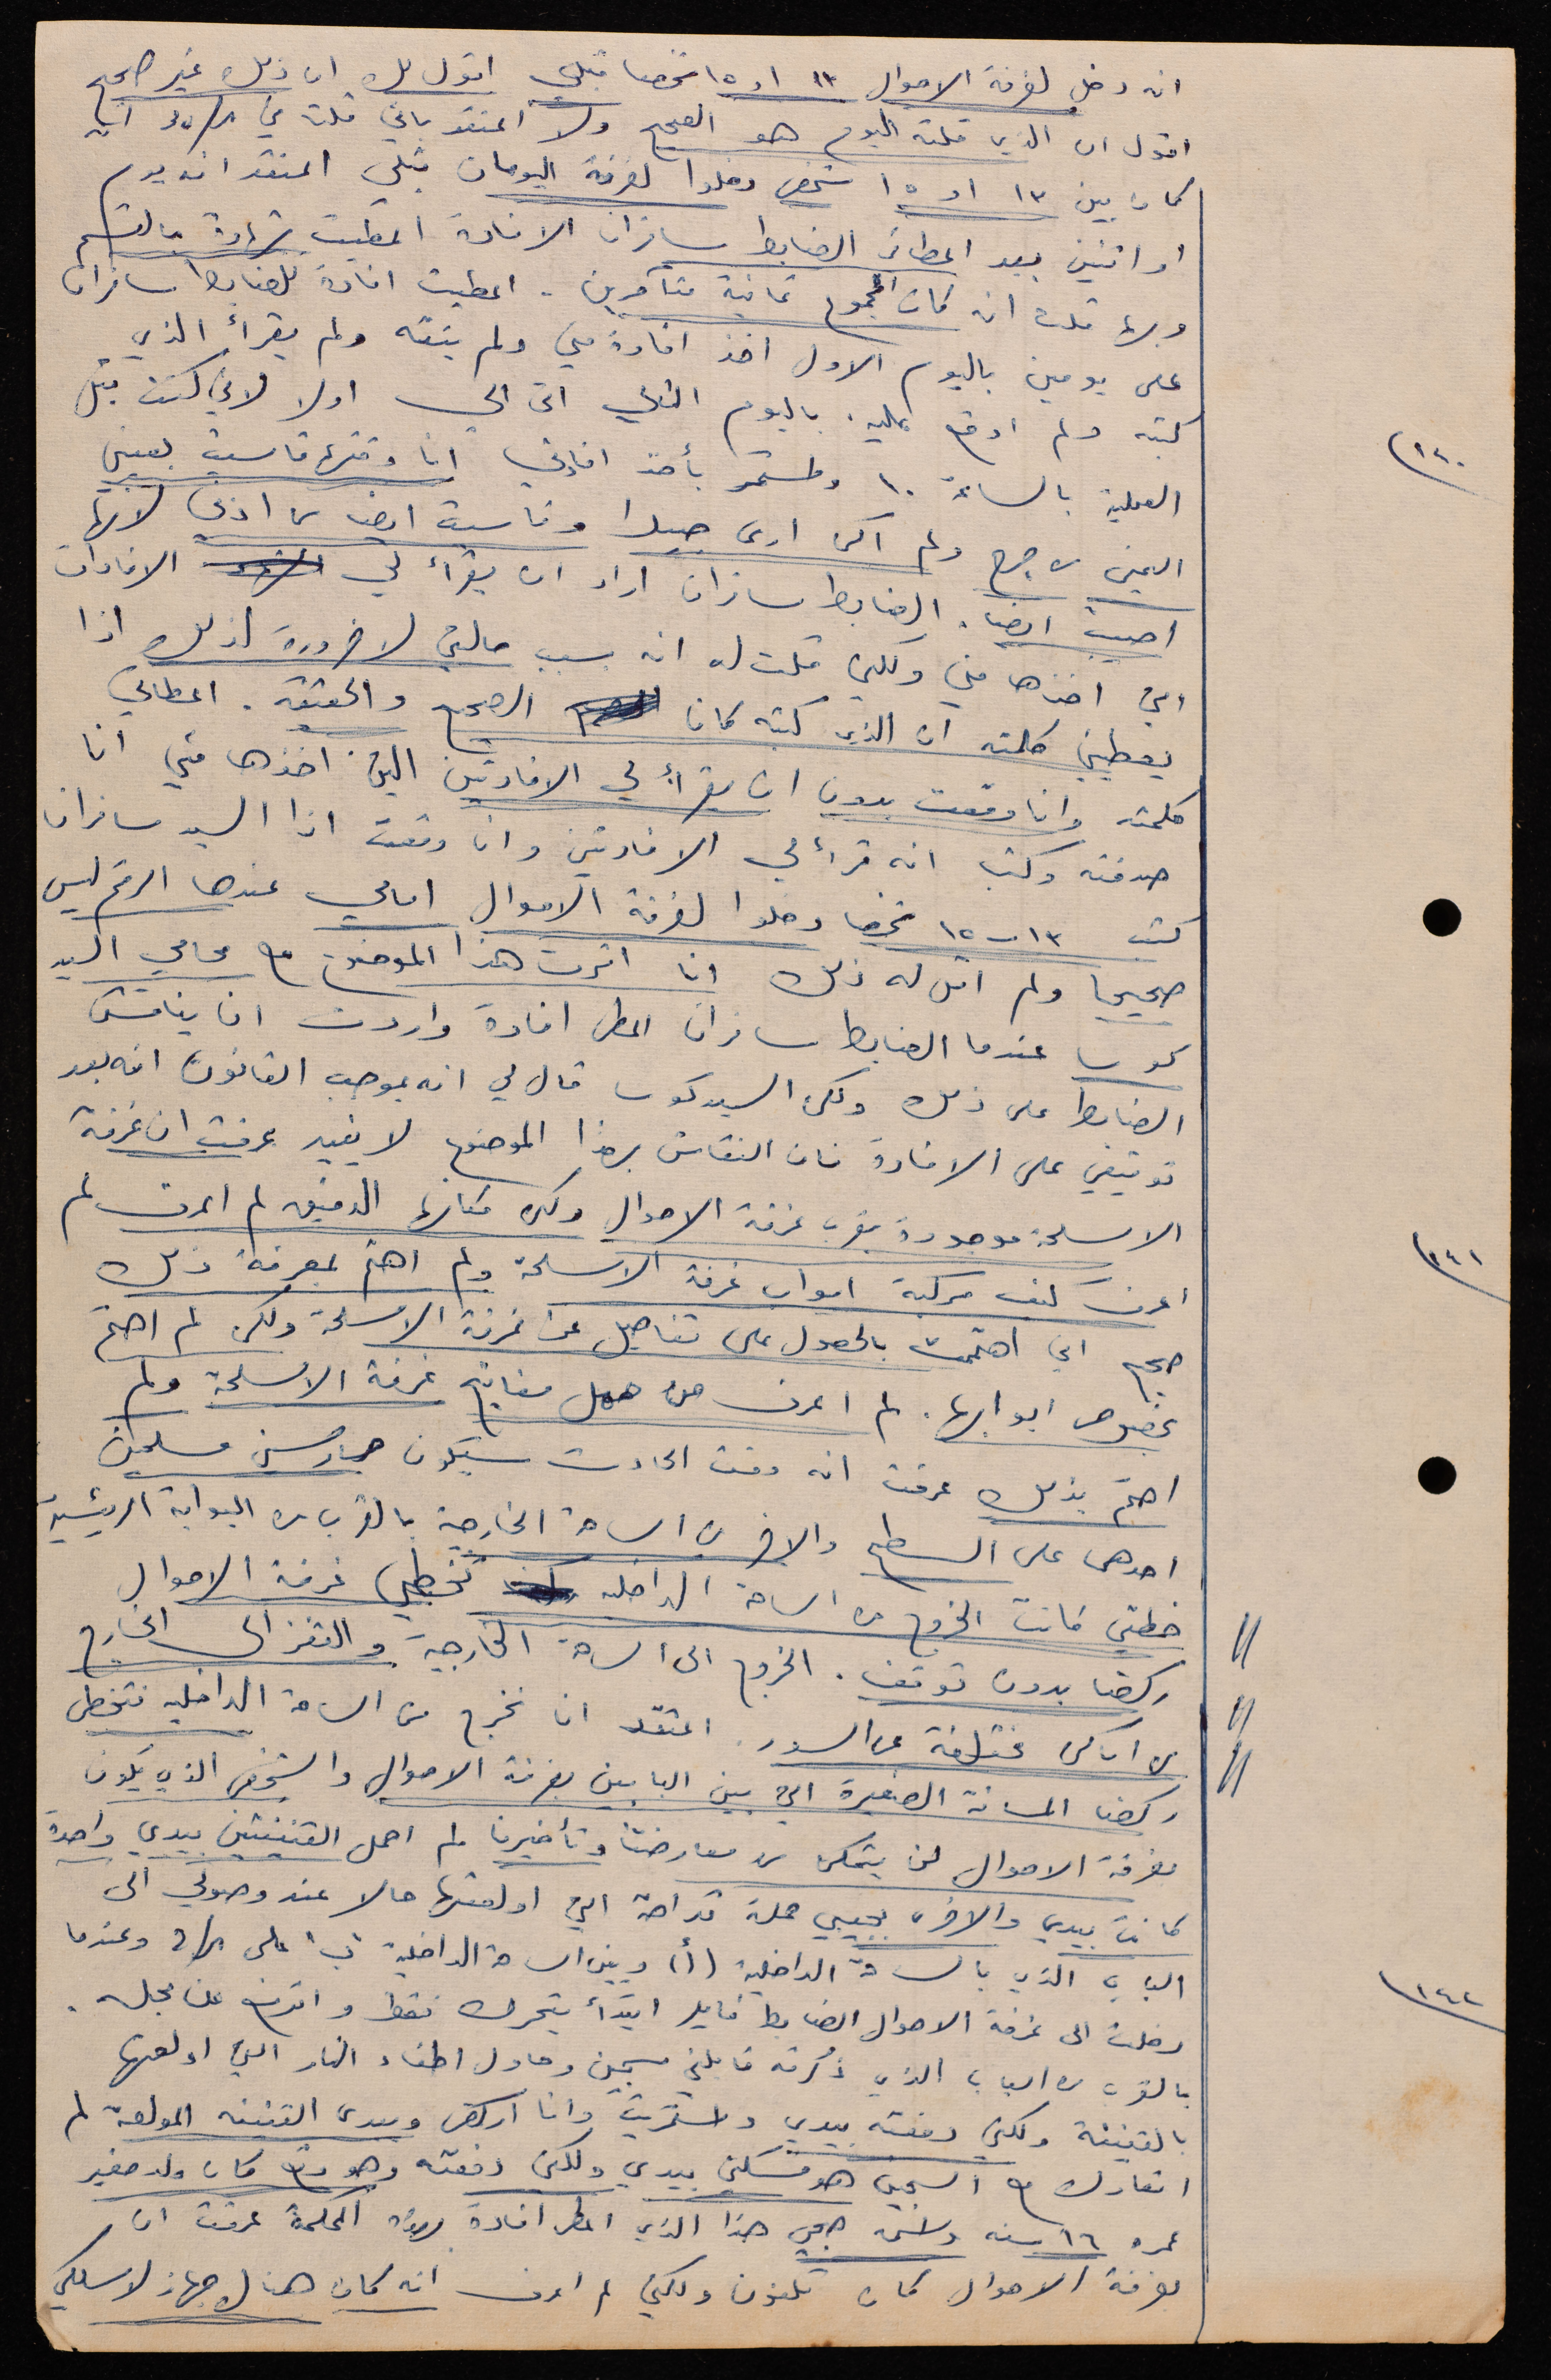 انه دخل لغرفة الاحوال ١٣ او ١٥ شخصا قبلي اقول لك ان ذلك غير صحيح
اقول ان الذي قلته اليوم هو الصحيح ولا اعتقد باني قلت في انه
كان بين ١٣ او ١٥ شخص دخلوا لغرفة اليومان قبلي اعتقد انه يوم
او اثنين بعد اعطائي الضابط سافران الافادة اعطيت شهادة بالقسم
وبها قلت انه كان المجموع ثمانية متآمرين. اعطيت افادة للضابط سافران
على يومين باليوم الاول اخذ افادة مني ولم ينته ولم يقرأ الذي
كتبه ولم اوقع عليه. باليوم الثاني اتى الي اولا لاني كنت قبل
١٤٠
العملية بالساعة ١٠ واستمر بأخذ افادتي انا وقتها قاسيت بعيني
اليمنى من جرح ولم اكن ارى جيدا وقاسيت ايضا من اذني لانها
اصيبت ايضا. الضابط سافران اراد ان يقرأ لي الافادات
التي اخذها مني ولكني قلت له انه بسبب حالتي لا ضرورة لذلك اذا
يعطيني كلمته ان الذي كتبه كان الصحيح والحقيقة. اعطاني
كلمته وانا وقعت بدون ان يقرأ لي الافادتين التي اخذها مني انا
صدقته وكتب انه قرأ لي الافادتين وانا وقعت اذا السيد سافران
كتب ١٣-١٥ شخصا دخلوا لغرفة الاحوال امامي عندها الرقم ليس
صحيحا ولم اقل له ذلك انا اثرت هذا الموضوع مع محامي السيد
كوسا عندما الضابط سافران اعطى افادة واردت ان يناقش
الضابط على ذلك ولكن السيد كوسا قال لي انه بموجب القانون انه بعد
توقيعي على الافادة فان النقاش بهذا الموضوع لا يفيد عرفت ان غرفة
الاسلحة موجودة بقرب غرفة الاحوال ولكن مكانها الدقيق لم اعرف لم
١٤١
اعرف كيف مركبة ابواب غرفة الاسلحة ولم اهتم لمعرفة ذلك
صحيح اني اهتممت بالحصول على تفاصيل عن غرفة الاسلحة ولكن لم اهتم
بخصوص ابوابها. لم اعرف من حمل مفاتيح غرفة الاسلحة ولم
اهتم بذلك عرفت انه وقت الحادث سيكون حارسين مسلحين
احدهم على السطح والاخر من الساحة الخارجية بالقرب من البوابة الرئيسية
خطتي كانت الخروج من الساحة الداخلية تخطي غرفة الاحوال
ركضا بدون توقف. الخروج الى الساحة الخارجية والقفز الى الخارج
من اماكن مختلفة عن السور. اعتقد ان نخرج من الساحة الداخلية فتخطى
ركضا المسافة الصغيرة التي بين البابين بغرفة الاحوال والشخص الذي يكون
بغرفة الاحوال لن يتمكن من معارضتنا وتأخيرنا لم احمل القنينتين بيدي واحدة
كانت بيدي والاخرى بجيبي حملت قداحة التي اولعتها حالا عند وصولي الى
الباب الذي بالساحة الداخلية (أ) وبين الساحة الداخلية "ب" على وعندما
١٤٢
دخلت الى غرفة الاحوال الضابط فايلر ابتدأ يتحرك فقط واقترب من محله.
بالقرب من الباب الذي ذكرته قابلني سجين وحاول اطفاء النار التي اولعتها
بالقنينة ولكني دفعته بيدي واستمريت وانا اركض وبيدي القنينة المولعة لم
اتعارك مع السجين هو مسكني بيدي ولكني دفعته وهو وقع كان ولد صغير
عمره ١٦ سنه هذا الذي اعطى افادة بهذه المحكمة عرفت ان
بغرفة الاحوال كان تلفون ولكني لم اعرف انه كان هناك جهاز لاسلكي